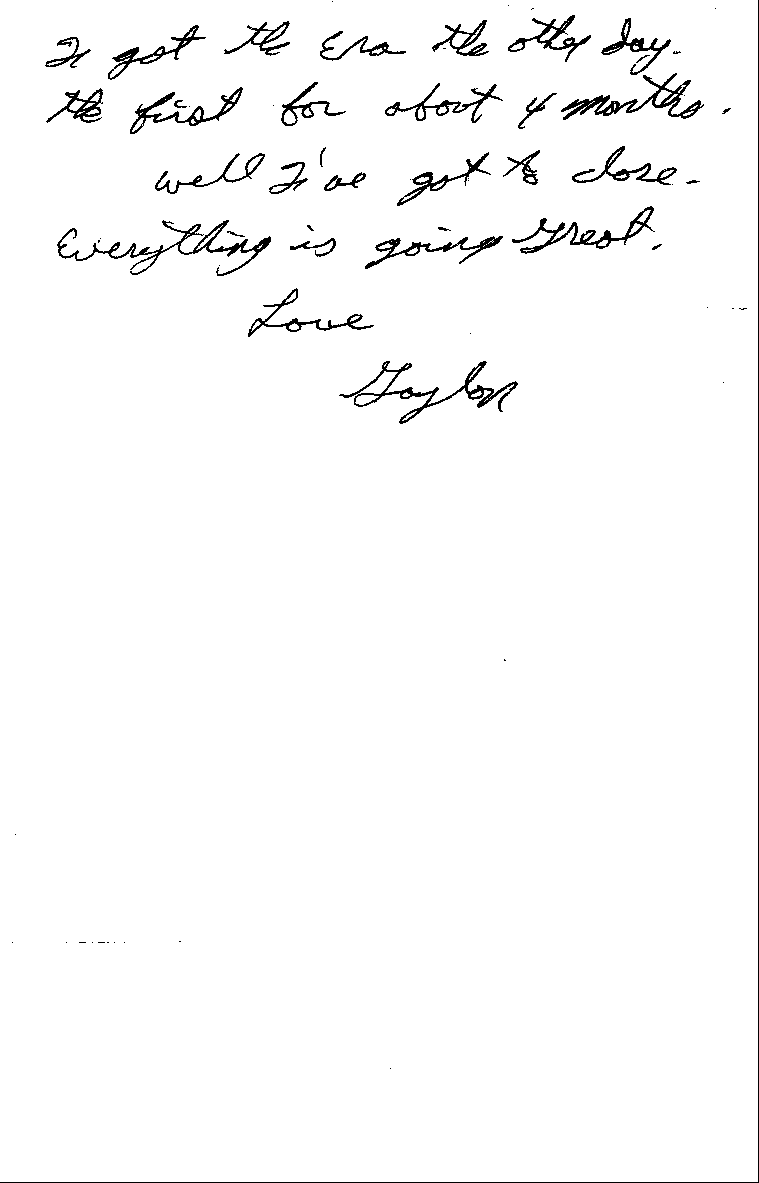 I got the Era the other day.
the first for about 4 months.
well I've got to close.
Everything is going great.
Love
Gaylon